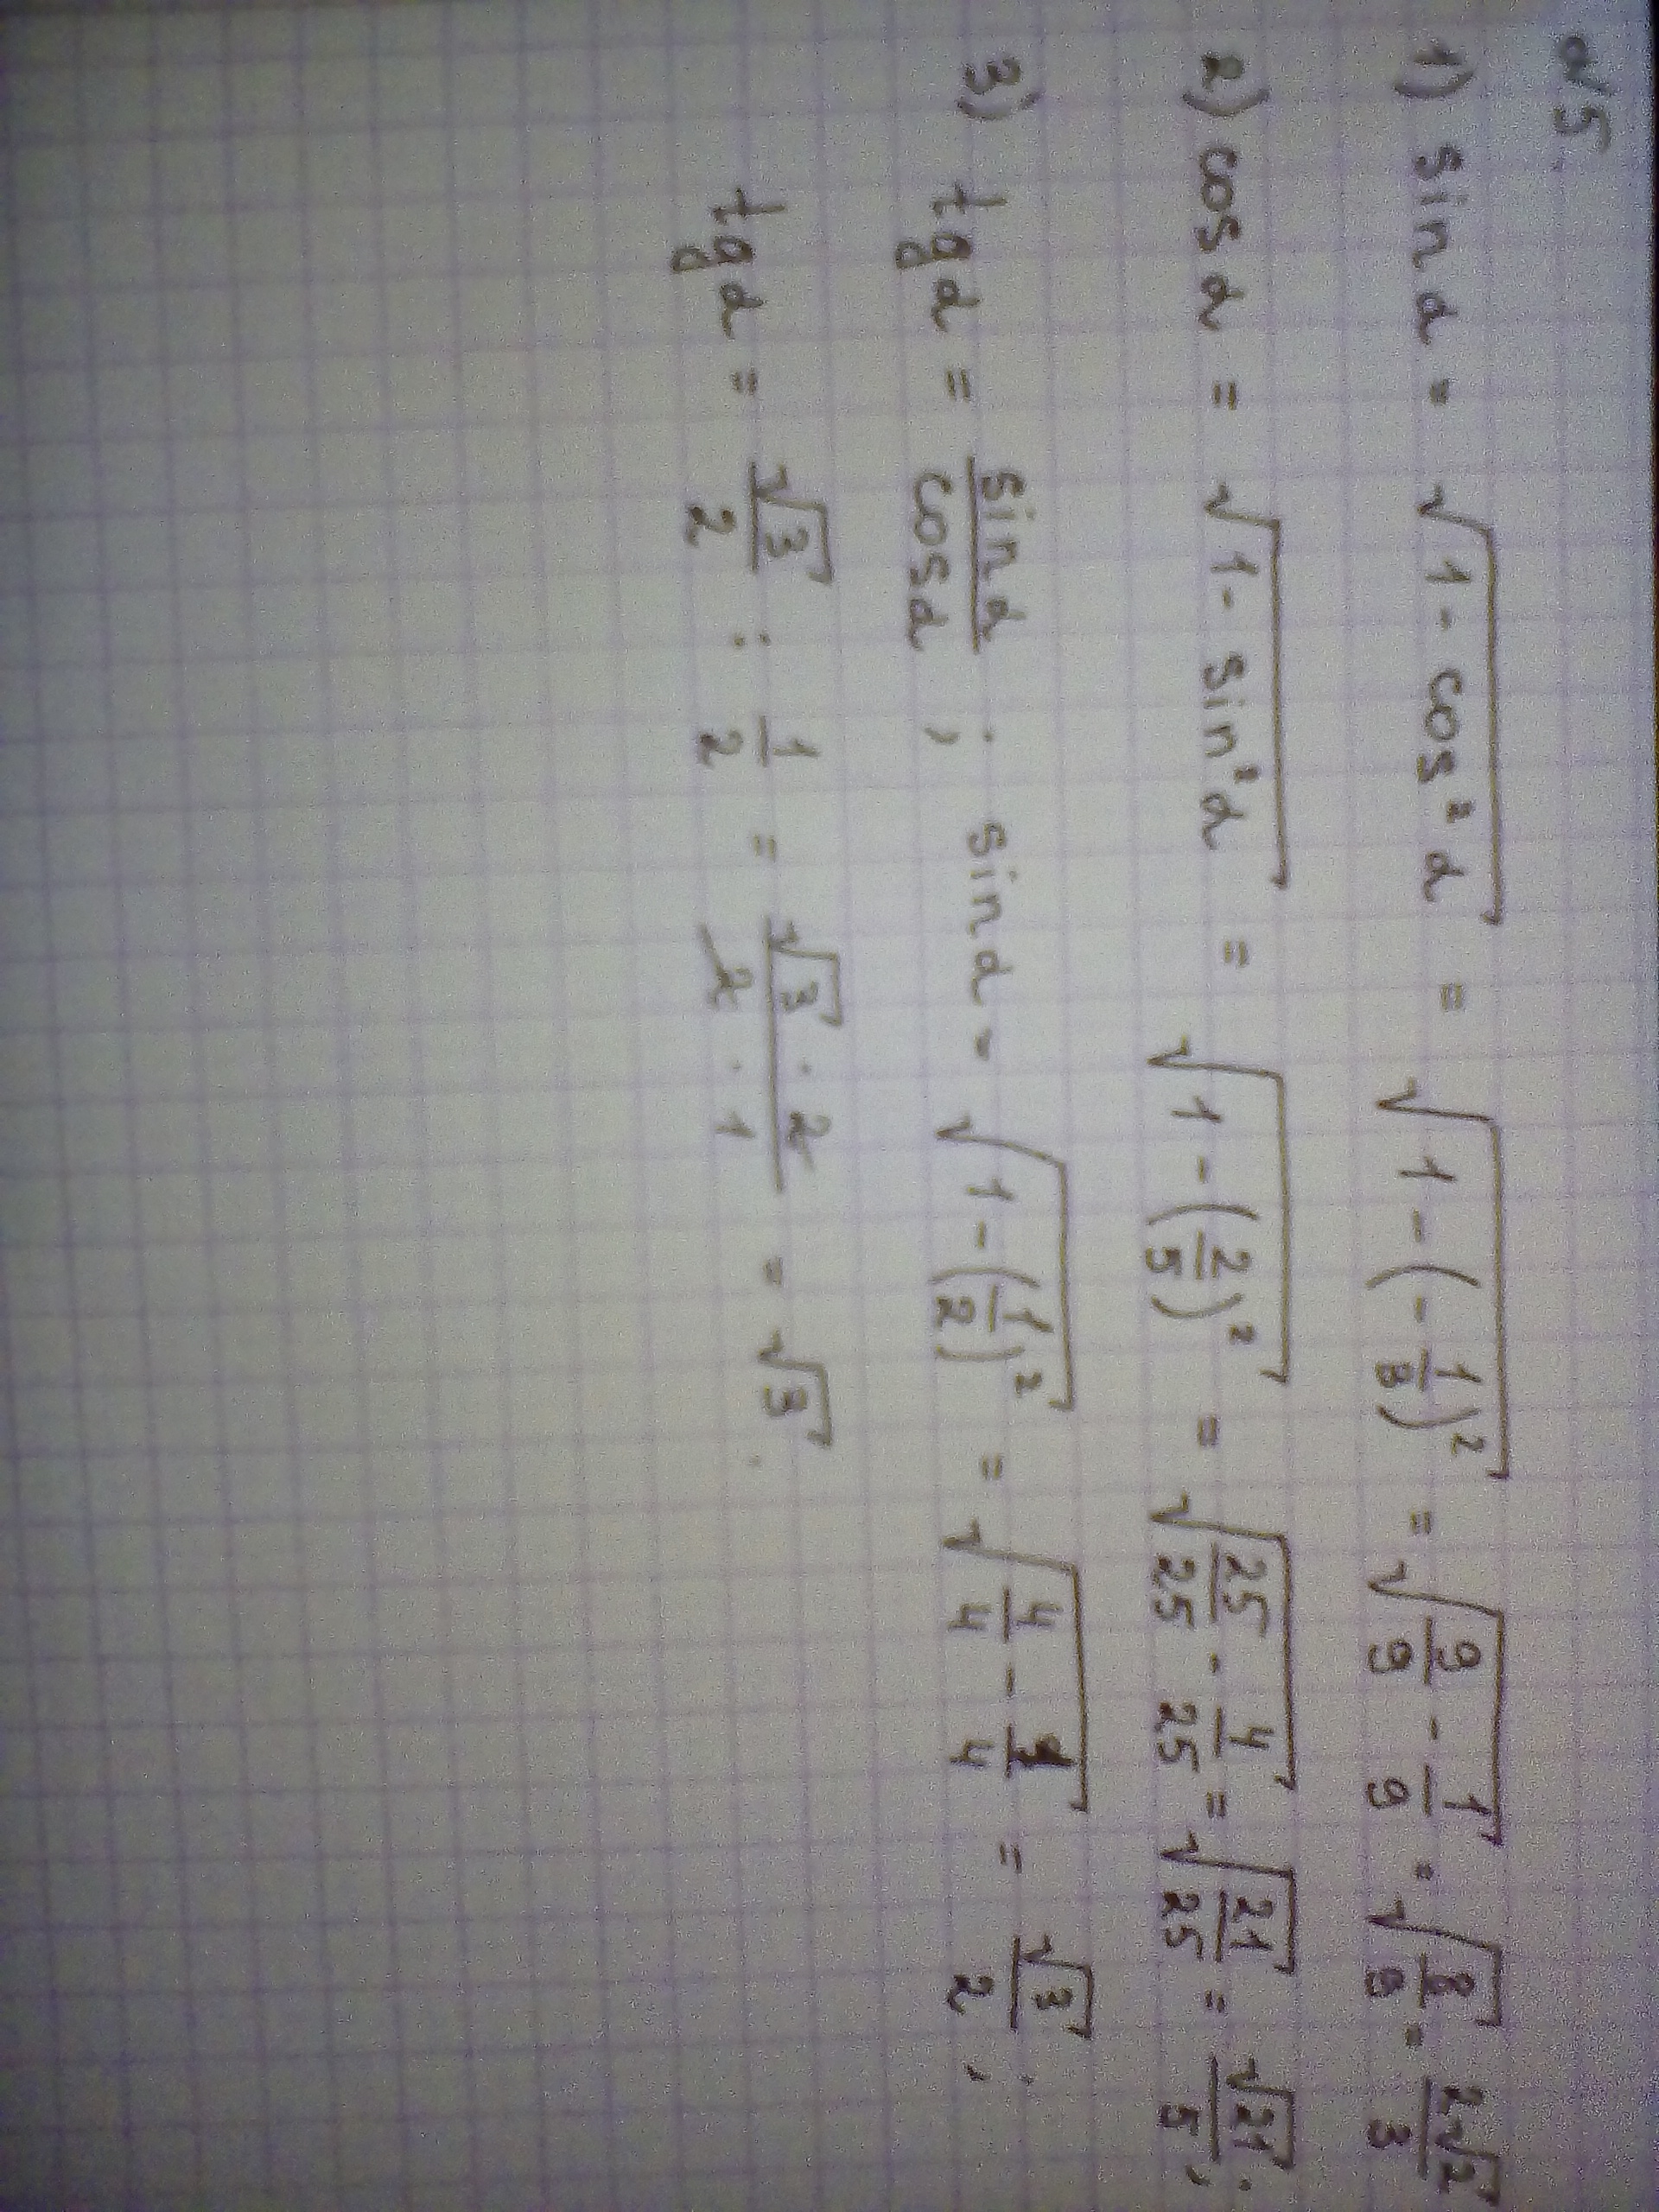 №5
1) sin α = √(1 - cos² α) = √(1 - (-1/3)²) = √(9/9 - 1/9) = √(8/9) = 2√2/3
2) cos α = √(1 - sin² α) = √(1 - (2/5)²) = √(25/25 - 4/25) = √(21/25) = √21/5;
3) tg α = sin α/cos α ; sin α = √(1 - (1/2)²) = √(4/4 - 1/4) = √3/2 ;
tg α = √3/2 : 1/2 = √3 · 2/2 · 1 = √3.